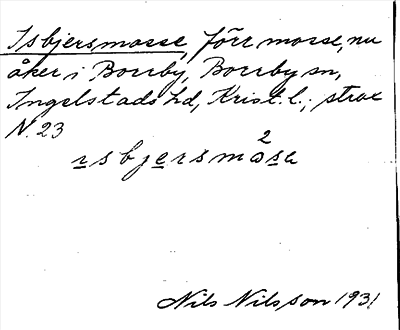 Isbjersmosse, förr mosse, nu
åker i Borrby, Borrby sn,
Ingelstads hd, Krist. l.; strax
N. 23
ɪsbjersmo²sa
Nils Nilsson 1931